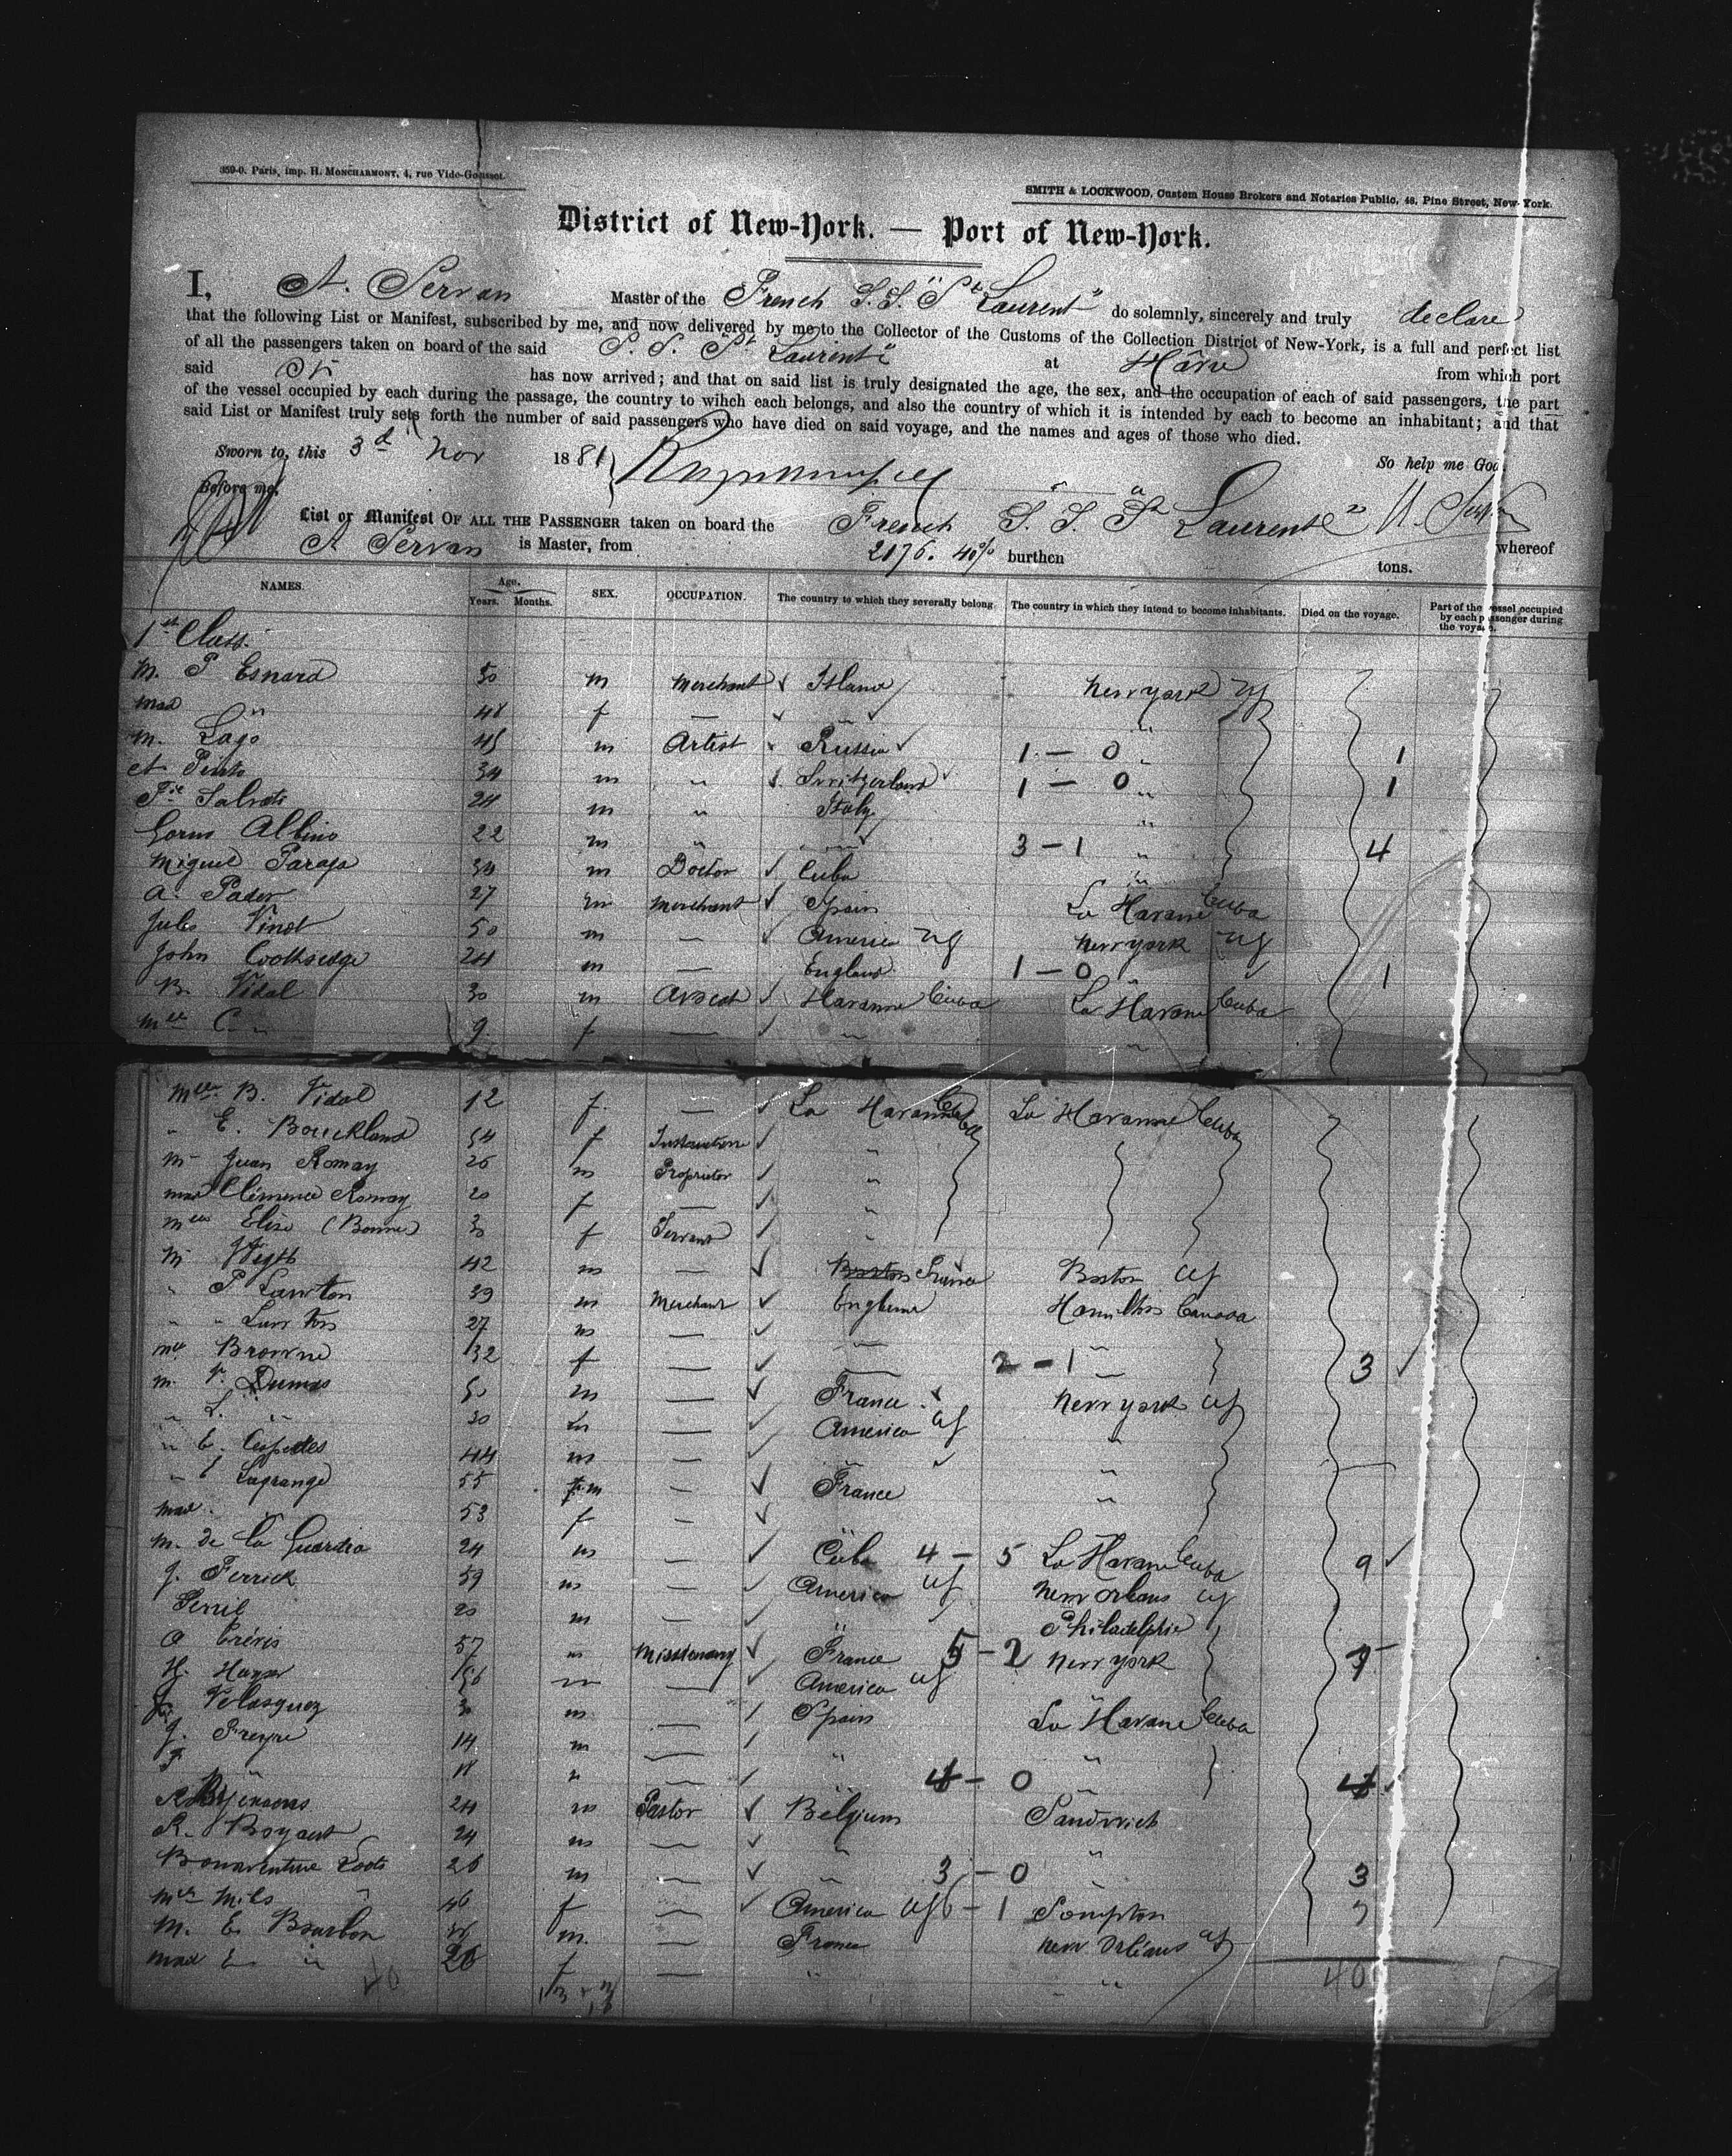 359-0. Paris, imp. H. MONCHARMONT, 4, rue Vide-Gousset.
SMITH & LOCKWOOD, Custom House Brokers and Notaries Public, 48, Pine Street, New-York.
District of New-York. — Port of New-York.
I, A. Servan Master of the French S.S. "St Laurent" do solemnly, sincerely and truly declare
that the following List or Manifest, subscribed by me, and now delivered by me to the Collector of the Customs of the Collection District of New-York, is a full and perfect list
of all the passengers taken on board of the said S. S. "St Laurent" at Havre from which port
said has now arrived; and that on said list is truly designated the age, the sex, and the occupation of each of said passengers, the part
of the vessel occupied by each during the passage, the country to wihch each belongs, and also the country of which it is intended by each to become an inhabitant; and that
said List or Manifest truly sets forth the number of said passengers who have died on said voyage, and the names and ages of those who died.
Sworn to, this 3d Nov 1881 So help me God.
Before me,
List or Manifest OF ALL THE PASSENGER taken on board the French S. S. "St Laurent" A. Servan whereof
A Servan is Master, from 2176. 40% burthen tons.
NAMES. Age. Years. Months. SEX. OCCUPATION. The country to which they severally belong. The country in which they intend to become inhabitants. Died on the voyage. Part of the vessel occupied by each passenger during the voyage.
1st Class.
M. P Esnard 50 m Merchant New york
Mad " 48 f — " "
M. Lago 45 m Artist Russia 1 — 0 " 1
et Pinto 34 m " Switzerland 1 — 0 " 1
Salvati 24 m " Italy "
Albino 22 m " " 3 — 1 " 4
Miguel Paraga 34 m Doctor Cuba "
A. Pader 27 m Merchant Spain La Havane Cuba
Jules Vinot 50 m — America New york
John 24 m — England 1 — 0 " 1
B. Vidal 30 m Avocat Havanne Cuba La Havane Cuba
Melle C. " 9 f — " "
Melle B. Vidal 12 f. — La Havanne Cuba La Havanne Cuba
" E. Bouckland 54 f "
M. Juan Romay 26 m Proprietor "
Mad Clémence Romay 20 f — "
Melle Elise (Bonne) 30 f Servant "
M 42 m — Boston France Boston
" P Lawton 39 m Merchant England Hamilton Canada
" " Lawton 27 m — " "
Browne 32 f — — 2 — 1 3
M. V. Dumas 50 m — France New york
" L. " 30 m — America "
" C. Cespedes 44 m — " "
" E Lagrange 55 m — France "
Mad " 53 f — " "
M. de la Guardia 24 m — Cuba 4 — 5 La Havane Cuba 9
J. Ferrick 59 m — America New Orleans
20 m — " Philadelphia
57 m Missionary France 5 — 2 New york 7
H. 56 m — America "
Velasquez 30 m — Spain La Havane Cuba
J. Freyre 14 m — " "
" 18 — " 4 — 0 " 4
24 m Pastor Belgium Sandwich
R. Bogaert 24 m — " "
Bonaventure 26 m — " 3 — 0 " 3
Miles 46 f — America 6 — 1
M. E. Bourbon m. — France New Orléans
Mad E " 26 f — " "
40 40